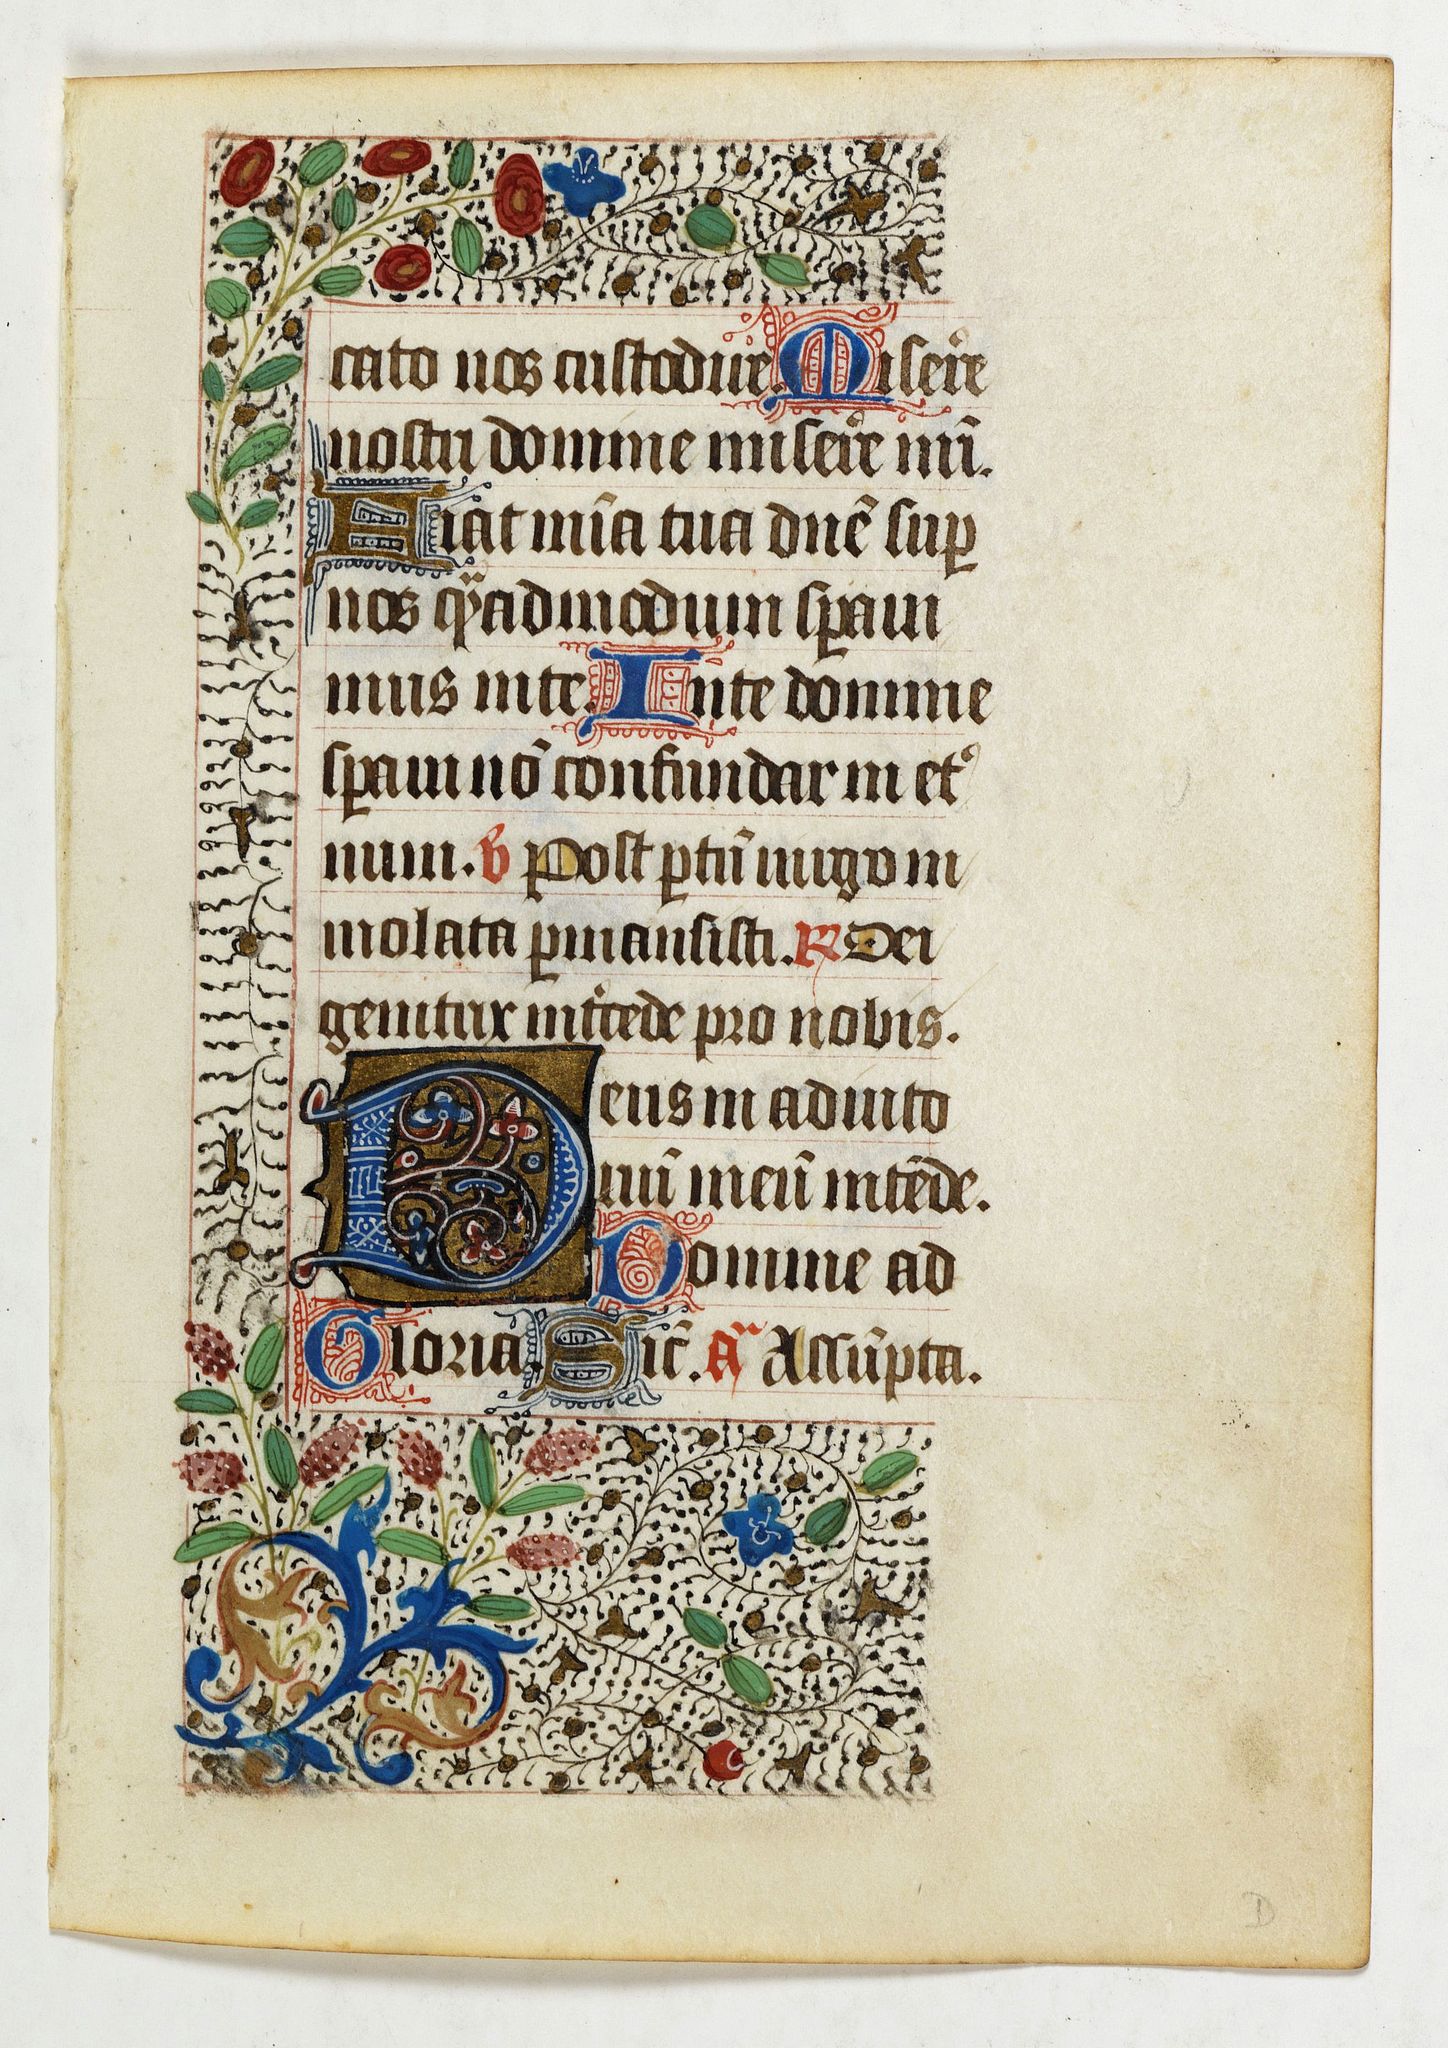 cato nos custodire. Misere̅re
nostri domine misere̅re nr̅i.
Fiat mi̅a tua dn̅e sup̲
nos que̅admodum sp̲aui
mus in te. In te domine
sp̲aui no̅ confundar in et'
num. V Post p̲tu̅ uirgo in
uiolata p̲mansisti. R Dei
genitrix int'cede pro nobis.
Deus in adiuto
riu̅ meu̅ inte̅de.
Domine ad
Gloria. Sic̅. An̅ Assu̅pta.
D